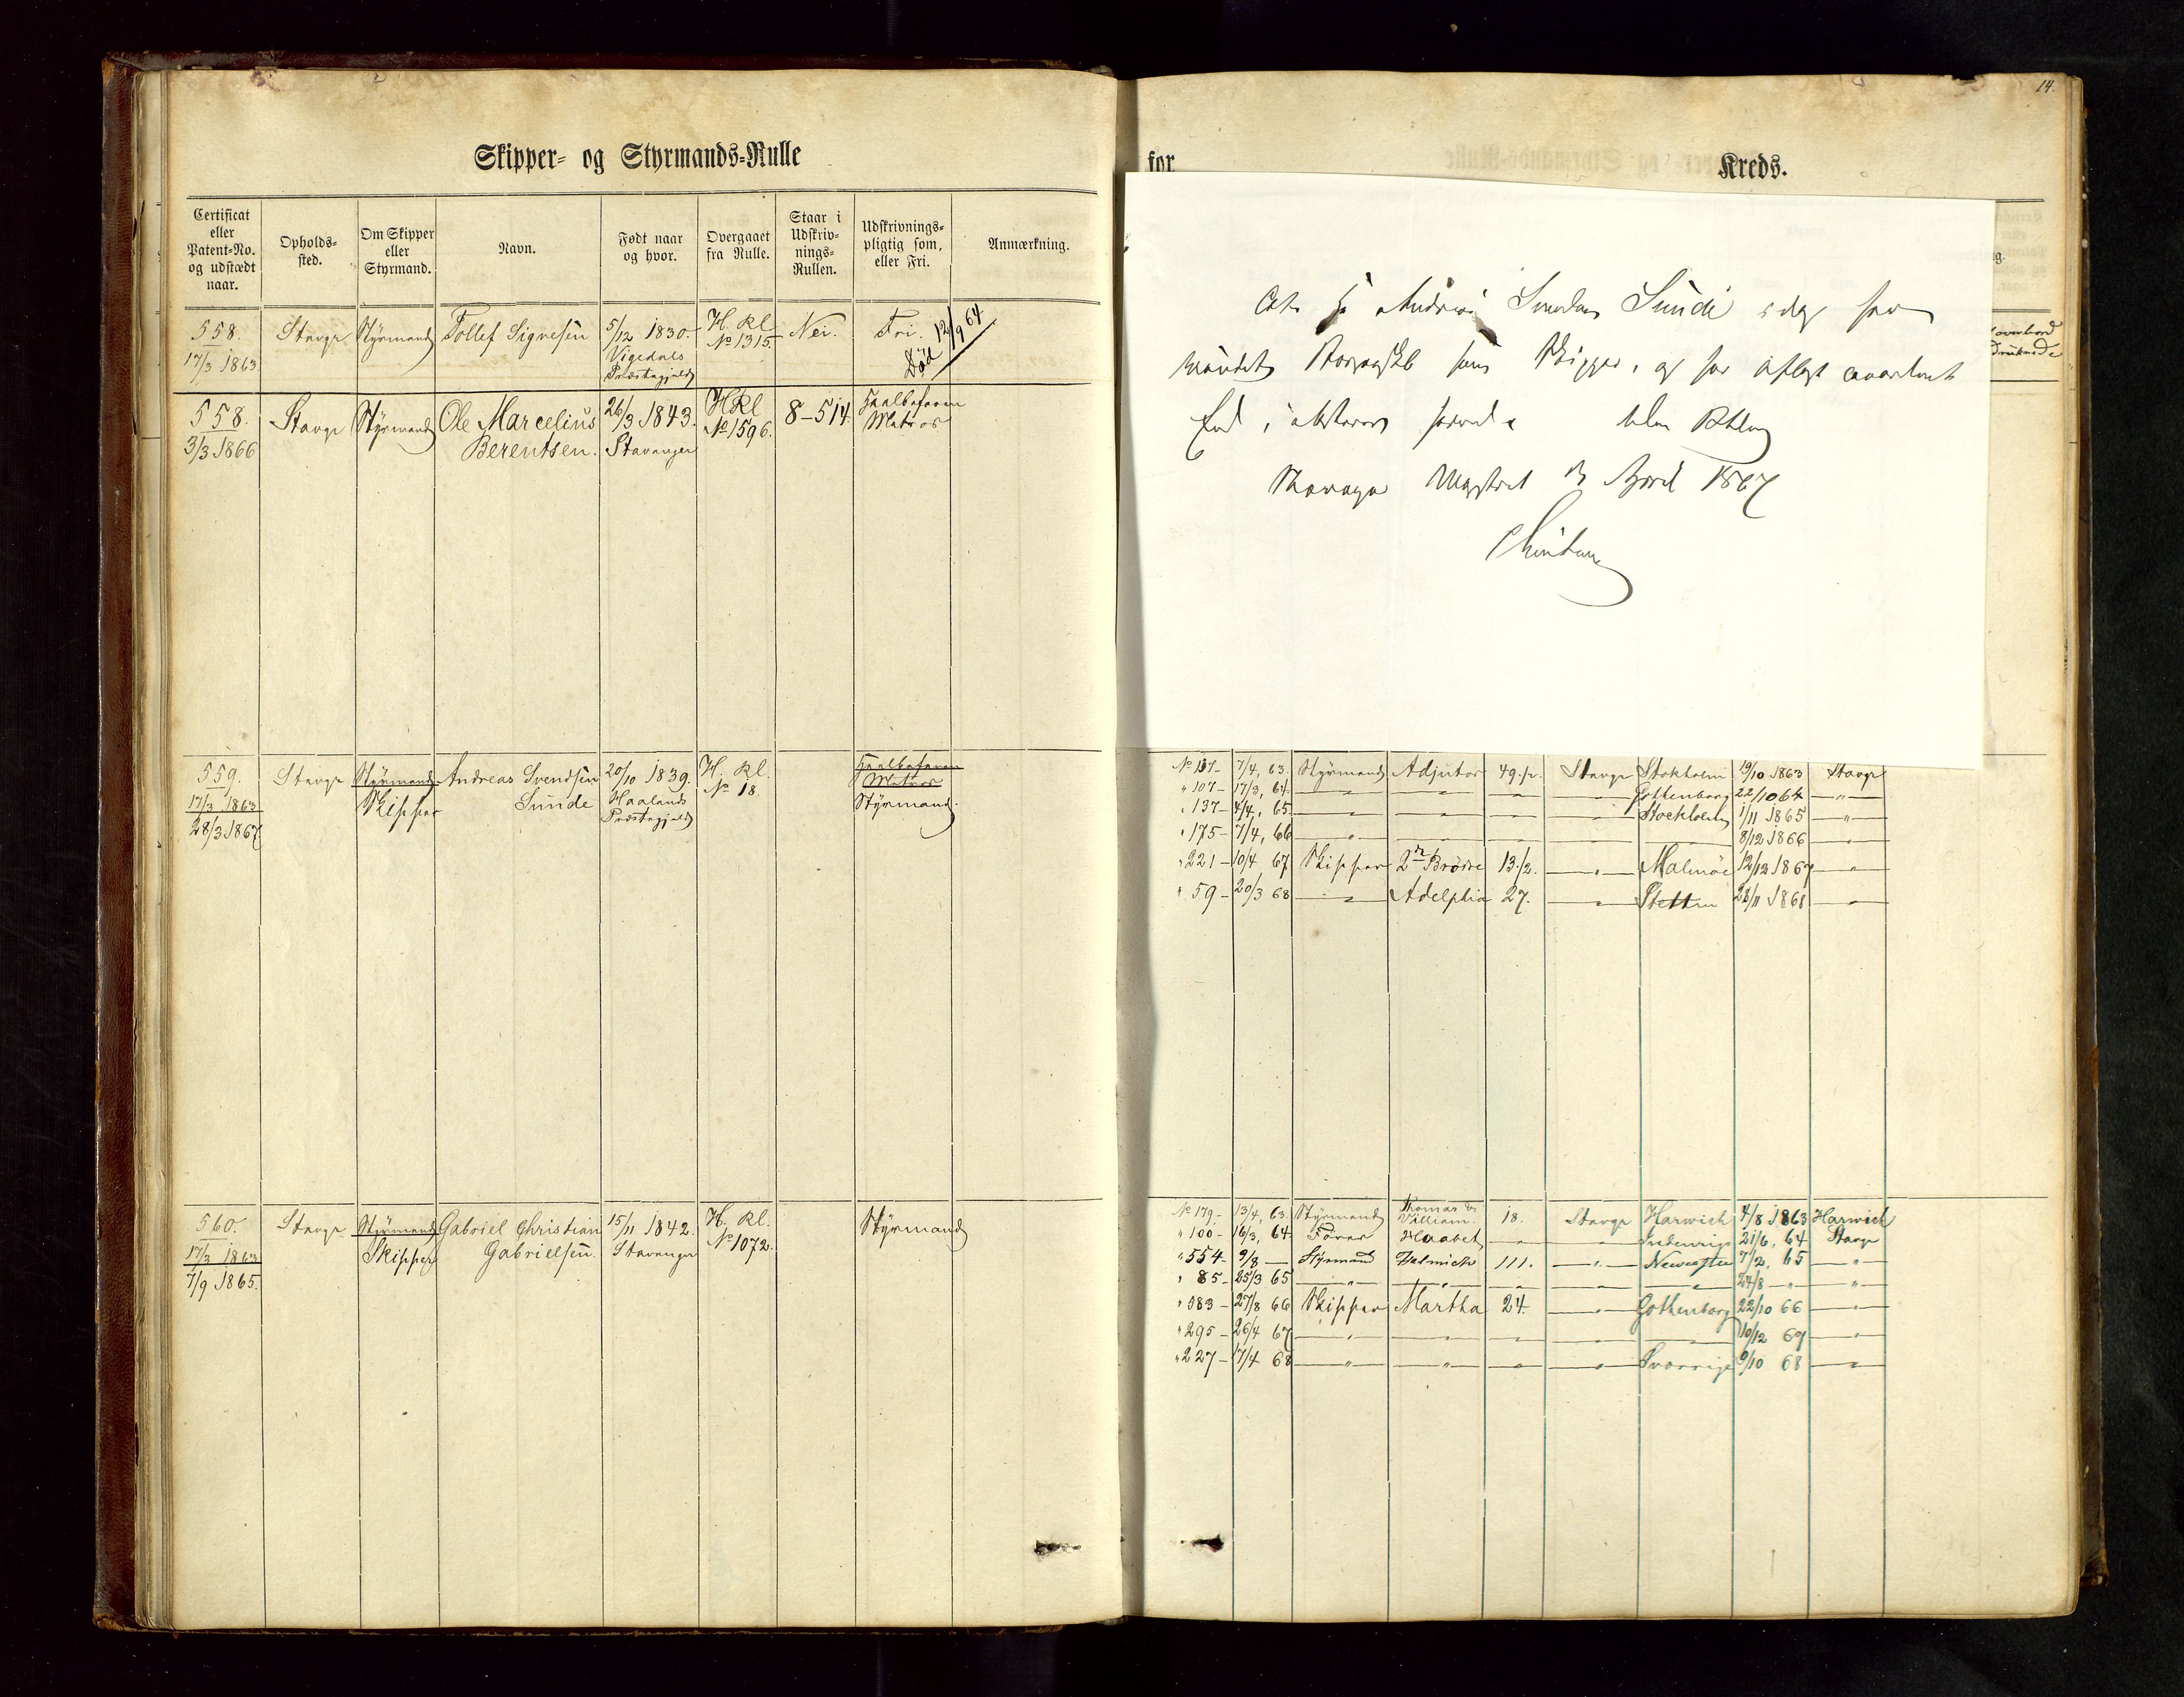 Skipper- og Styrmands-Rulle
Certificat eller Patent-No. og udstædt naar.
Opholds-sted.
Om Skipper eller Styrmand.
Navn.
Født naar og hvor.
Overgaaet fra Rulle.
Staar i Udskriv-nings-Rullen.
Udskrivnings-pligtig som, eller Fri.
Anmærkning.
558. Stavgr Styrmand Tollef Signesen 5/12 1830. H. Rl. Nei. Fri. Død 12/9 64
17/3 1863 Vigedals Præstegjeld № 1315.
558. Stavgr Styrmand Ole Marcelius 26/3 1843. H Rl 8-514. Halvbefaren
3/3 1866 Berentsen. Stavanger № 1596. Matros
559. Stavgr Styrmand Andreas Svendsen 20/10 1839. H. Rl. Halvbefaren Matros
17/3 1863 Skipper Sunde Haalands № 18. Styrmand.
28/3 1867. Præstegjeld
560. Stavgr Styrmand Gabriel Christian 15/11 1842. H. Rl. Styrmand
17/3 1863 Skipper Gabrielsen. Stavanger № 1072.
7/9 1865.
14.
for Kreds.
overbord
druknede
Sunde idag har
som Skipper, og har aflagt
April 1867
№ 137- 7/4, 63. Styrmand Adjutor 49.½. Stavgr Stokholm 19/10 1863 Stavgr
" 107- 17/3, 64. — — — — Gottenborg 22/10 64 — " —
" 137- 4/4, 65. — — — — Stockholm 1/11 1865 — " —
" 175- 7/4, 66 — " — — — — — 8/12 1866 — " —
" 221- 10/4 67 Skipper 2de Brødre 13.½. — " — Malmöe 12/12 1867 — " —
" 59- 20/3 68 — " — Adelphia 27. — " — Stettin 28/11 1868 — " —
№ 179- 13/4, 63. Styrmand Thomas & William. 18. Stavgr Harwich 4/8 1863 Harwich
" 100- 16/3, 64 Fører Haabet — " — — " — 21/6, 64 Stavgr
" 554- 9/8 — Styrmand 111. — " — Newcastle 7/2, 65 — " —
" 85- 25/3 65 — " — — " — — " — — " — — " — 24/8 — " — — " —
" 583- 27/8 66 Skipper Martha 24. — " — Gothenborg 22/10 66 — " —
" 295- 26/4 67 — " — — " — — " — — " — — " — 10/12 67 — " —
" 227- 17/4 68 — " — — " — — " — — " — Sverrige 9/10 68 — " —